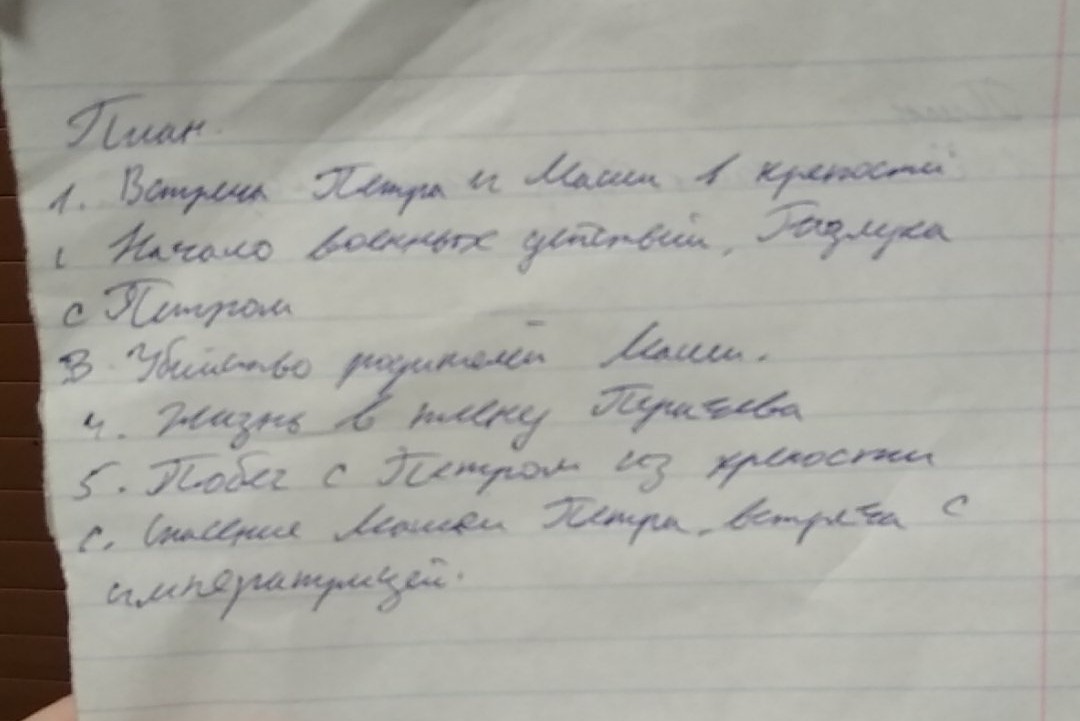 План.
1. Встреча Петра и Маши в крепости
Начало военных действий. Разлука
с Петром
3. Убийство родителей Маши.
4. Жизнь в плену Пугачева
5. Побег с Петром из крепости
6. Спасение Машей Петра, встреча с
императрицей.